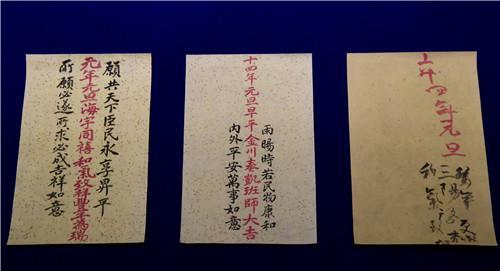 願共天下臣民永享昇平
元年元旦海宇同禧和氣致祥豐年為瑞
所願必遂所求必成吉祥如意
雨暘時若民物康和
十四年元旦早平金川奏凱班師大吉
內外平安萬事如意
四年元旦